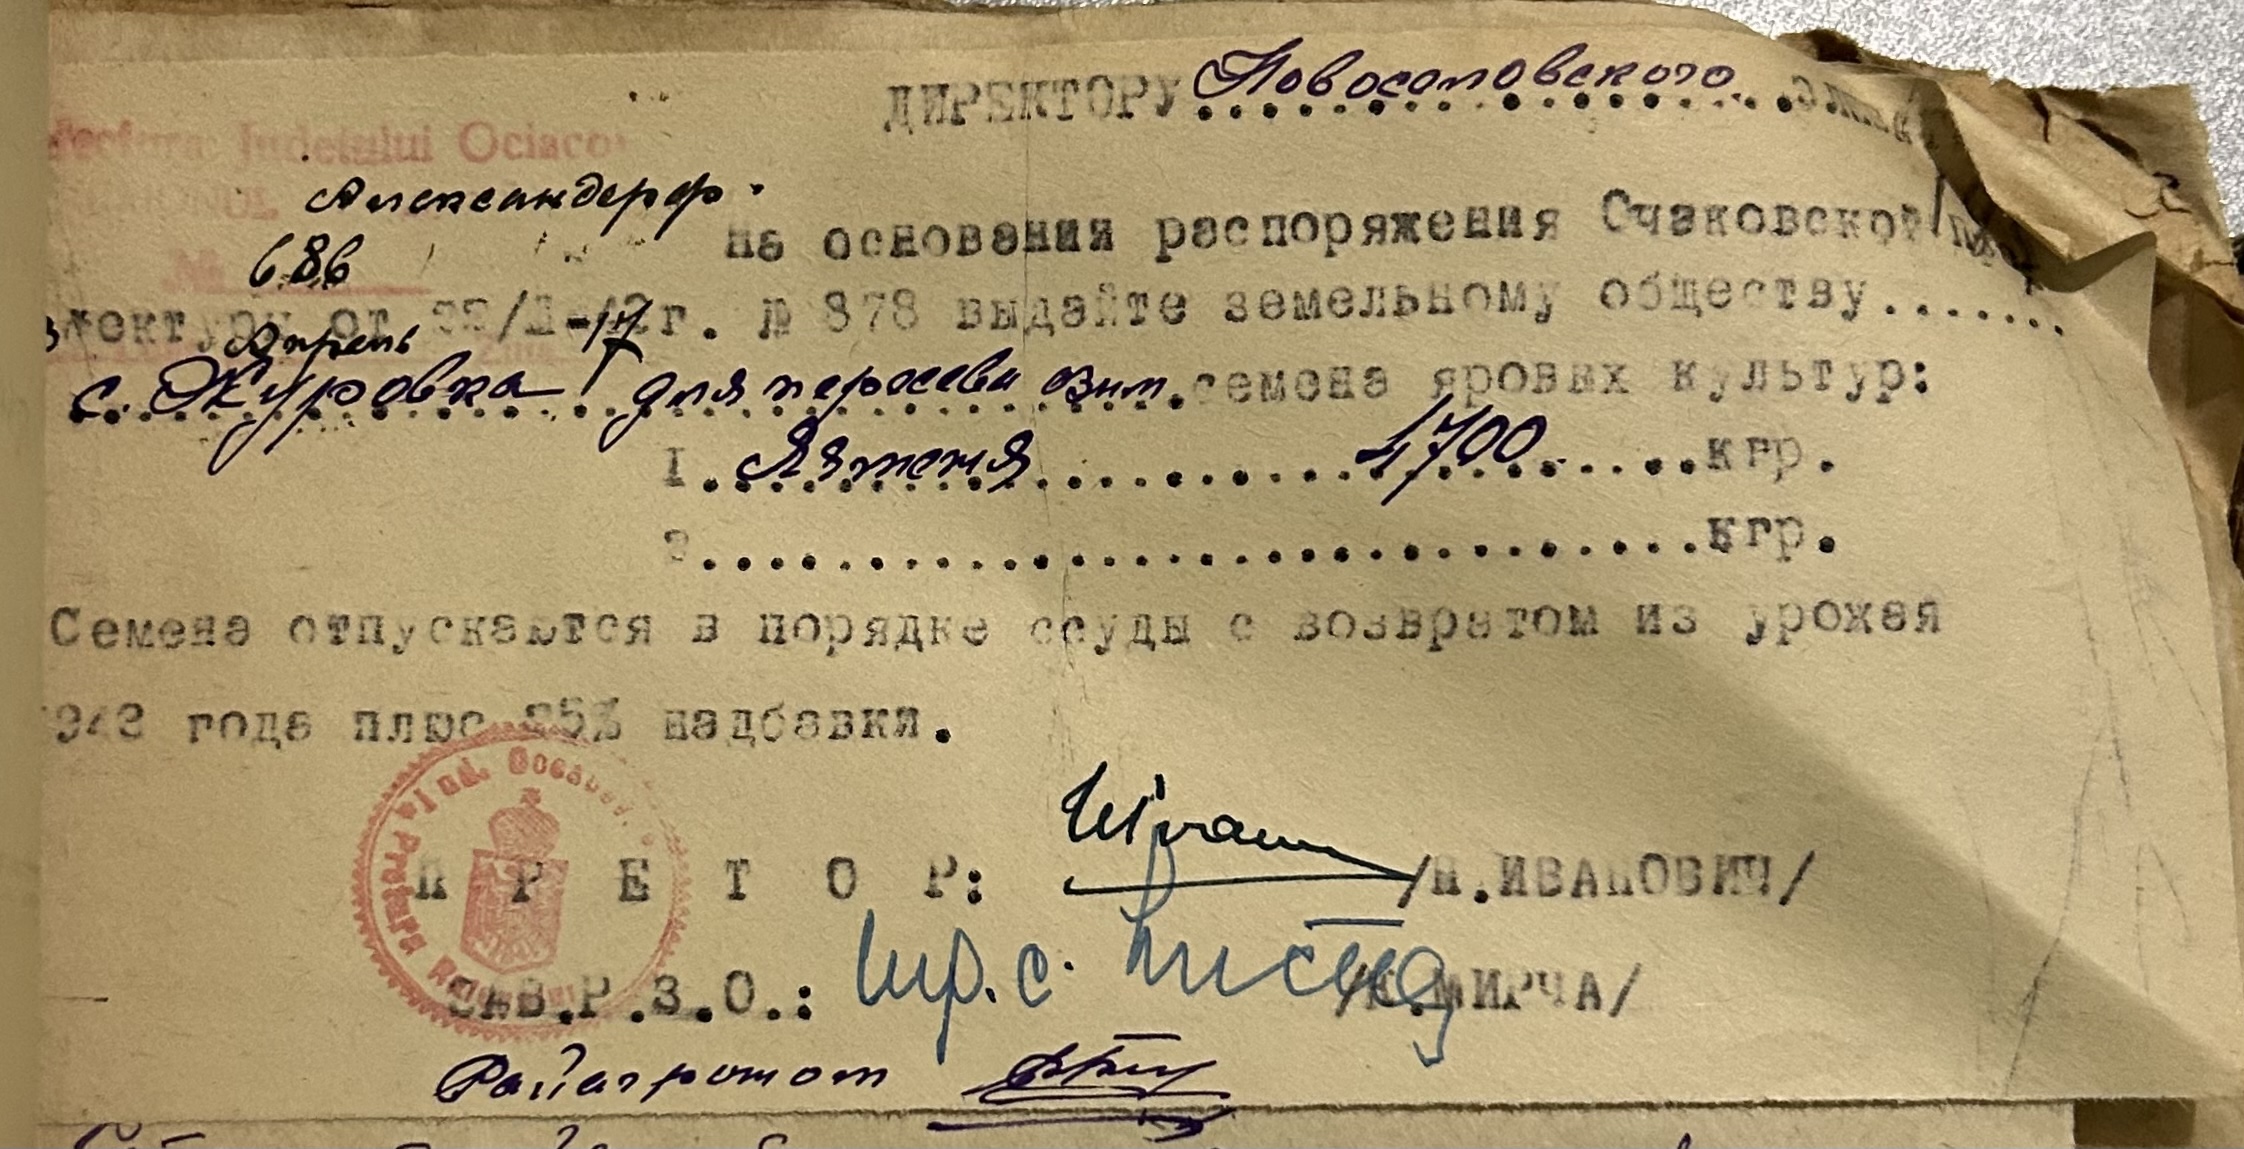 ДИРЕКТОРУ Новосоловского
Prefura Judetului Ociacov
Александерф.
686
На основании распоряжения Очаковской
фектуры от 22/II-42г. № 878 выдайте земельному обществу.......
Апрель 17
с. Журовка для пересева озим. семена яровых культур:
1. Ячменя 1700 кгр.
2. кгр.
Семена отпускаются в порядке ссуды с возвратом из урожая
1942 года плюс 25% надбавки.
П Р Е Т О Р: /Н.ИВАНОВИЧ/
ЗАВ.Р.З.О.: /МИРЧА/
Райагроном